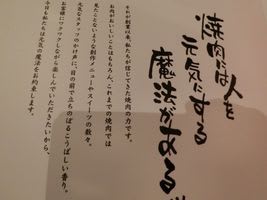 焼肉には人を
元気にする
魔法がある
それが創業以来、私たちが信じてきた焼肉の力です。
お肉がおいしいことはもちろん、これまでの焼肉では
見たことないような創作メニューやスイーツの数々。
元気なスタッフのかけ声に、目の前で立ちのぼるこうばしい香り。
お客様にワクワクしながら楽しんでいただきたいから、
今日も私たちは元気の魔法をお約束します。